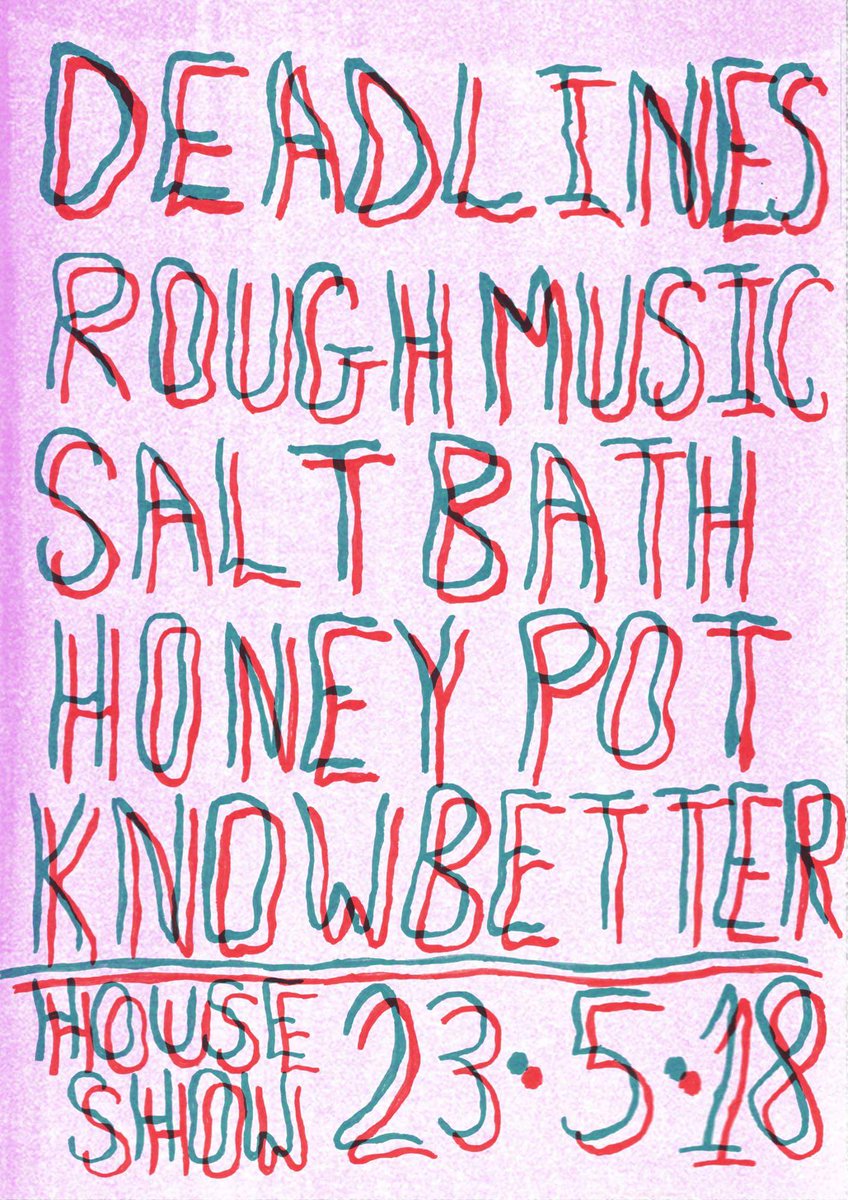 DEADLINES
ROUGH MUSIC
SALT BATH
HONEY POT
KNOWBETTER
HOUSE SHOW
23·5·18